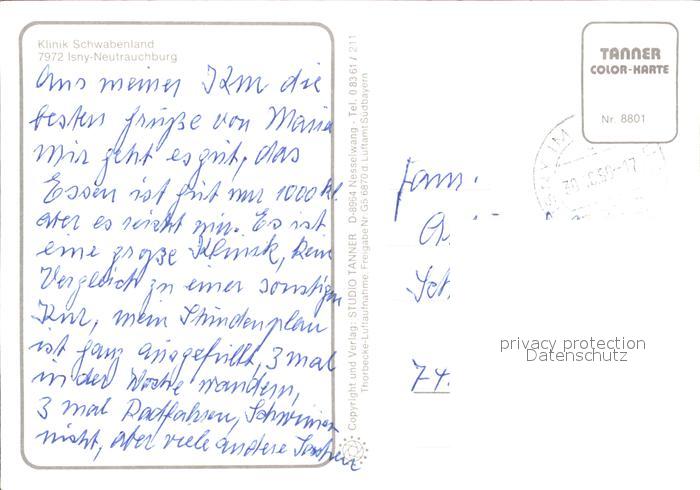 Klinik Schwabenland
7972 Isny-Neutrauchburg
Aus meiner Kur die
besten Grüße von Maria
Mir geht es gut, das
Essen ist gut nur 1000 kl.
aber es reicht mir. Es ist
eine große Klinik, kein
Vergleich zu einer sonstigen
Kur, mein Stundenplan
ist ganz ausgefüllt, 3 mal
in der Woche wandern,
3 mal Radfahren, Schwimmen
nicht, aber viele andere Sachen
Copyright und Verlag: STUDIO TANNER D-8964 Nesselwang - Tel. 0 83 61 / 211
Thorbecke-Luftaufnahme: Freigabe Nr. GS 6870 d. Luftamt Südbayern
TANNER
COLOR-KARTE
Nr. 8801
Fam.
74
privacy protection
Datenschutz